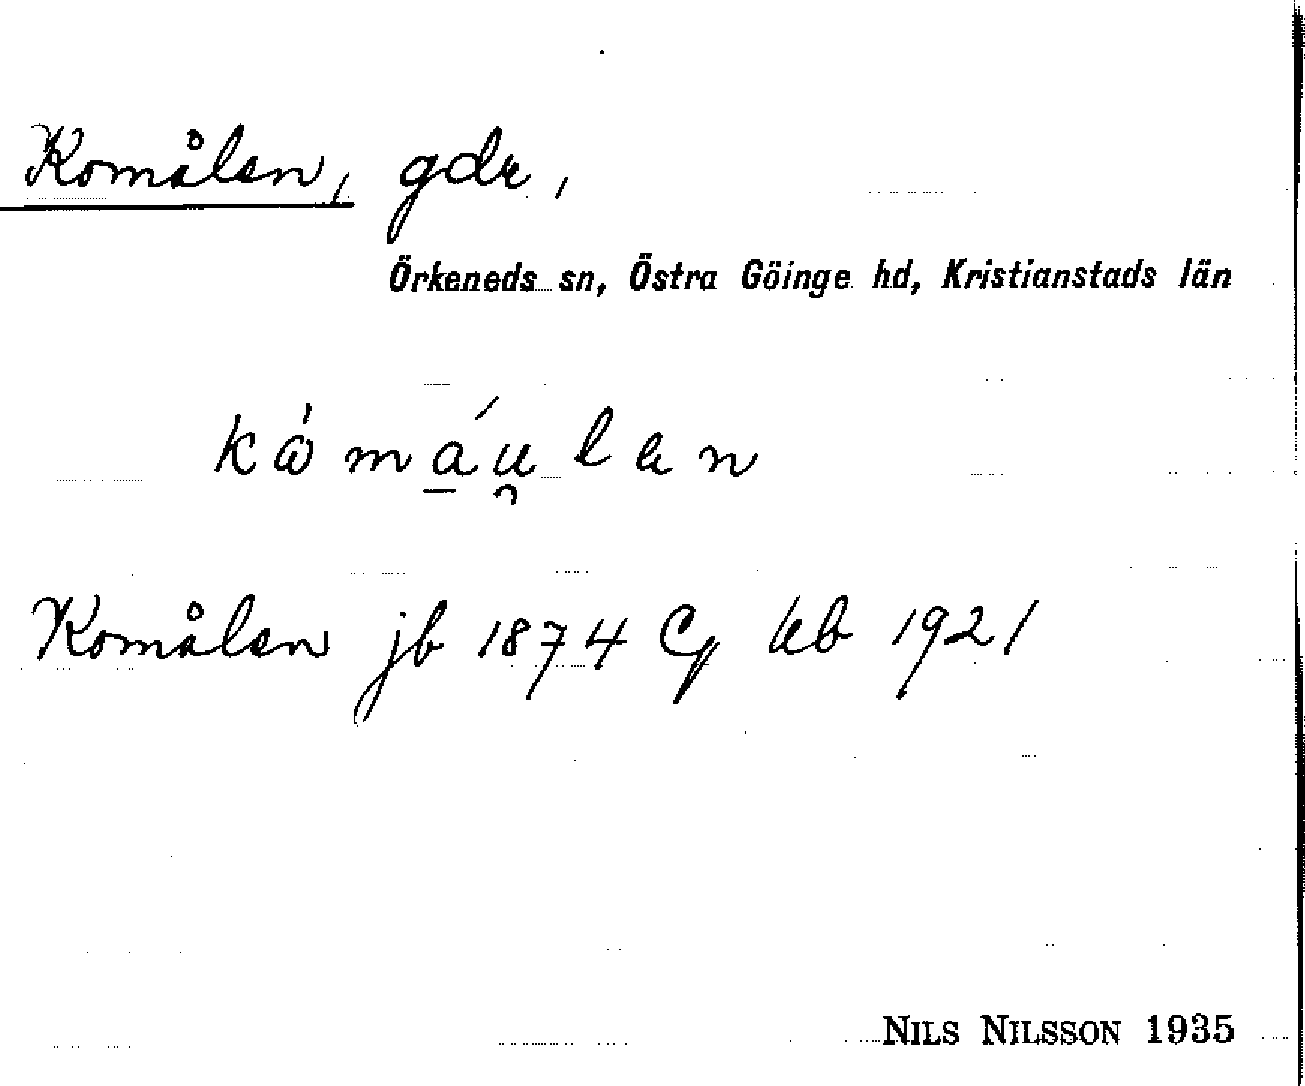 Komålen, gdr,
Örkeneds sn, Östra Göinge hd, Kristianstads län
Komålen jb 1874 Cg kb 1921
NILS NILSSON 1935